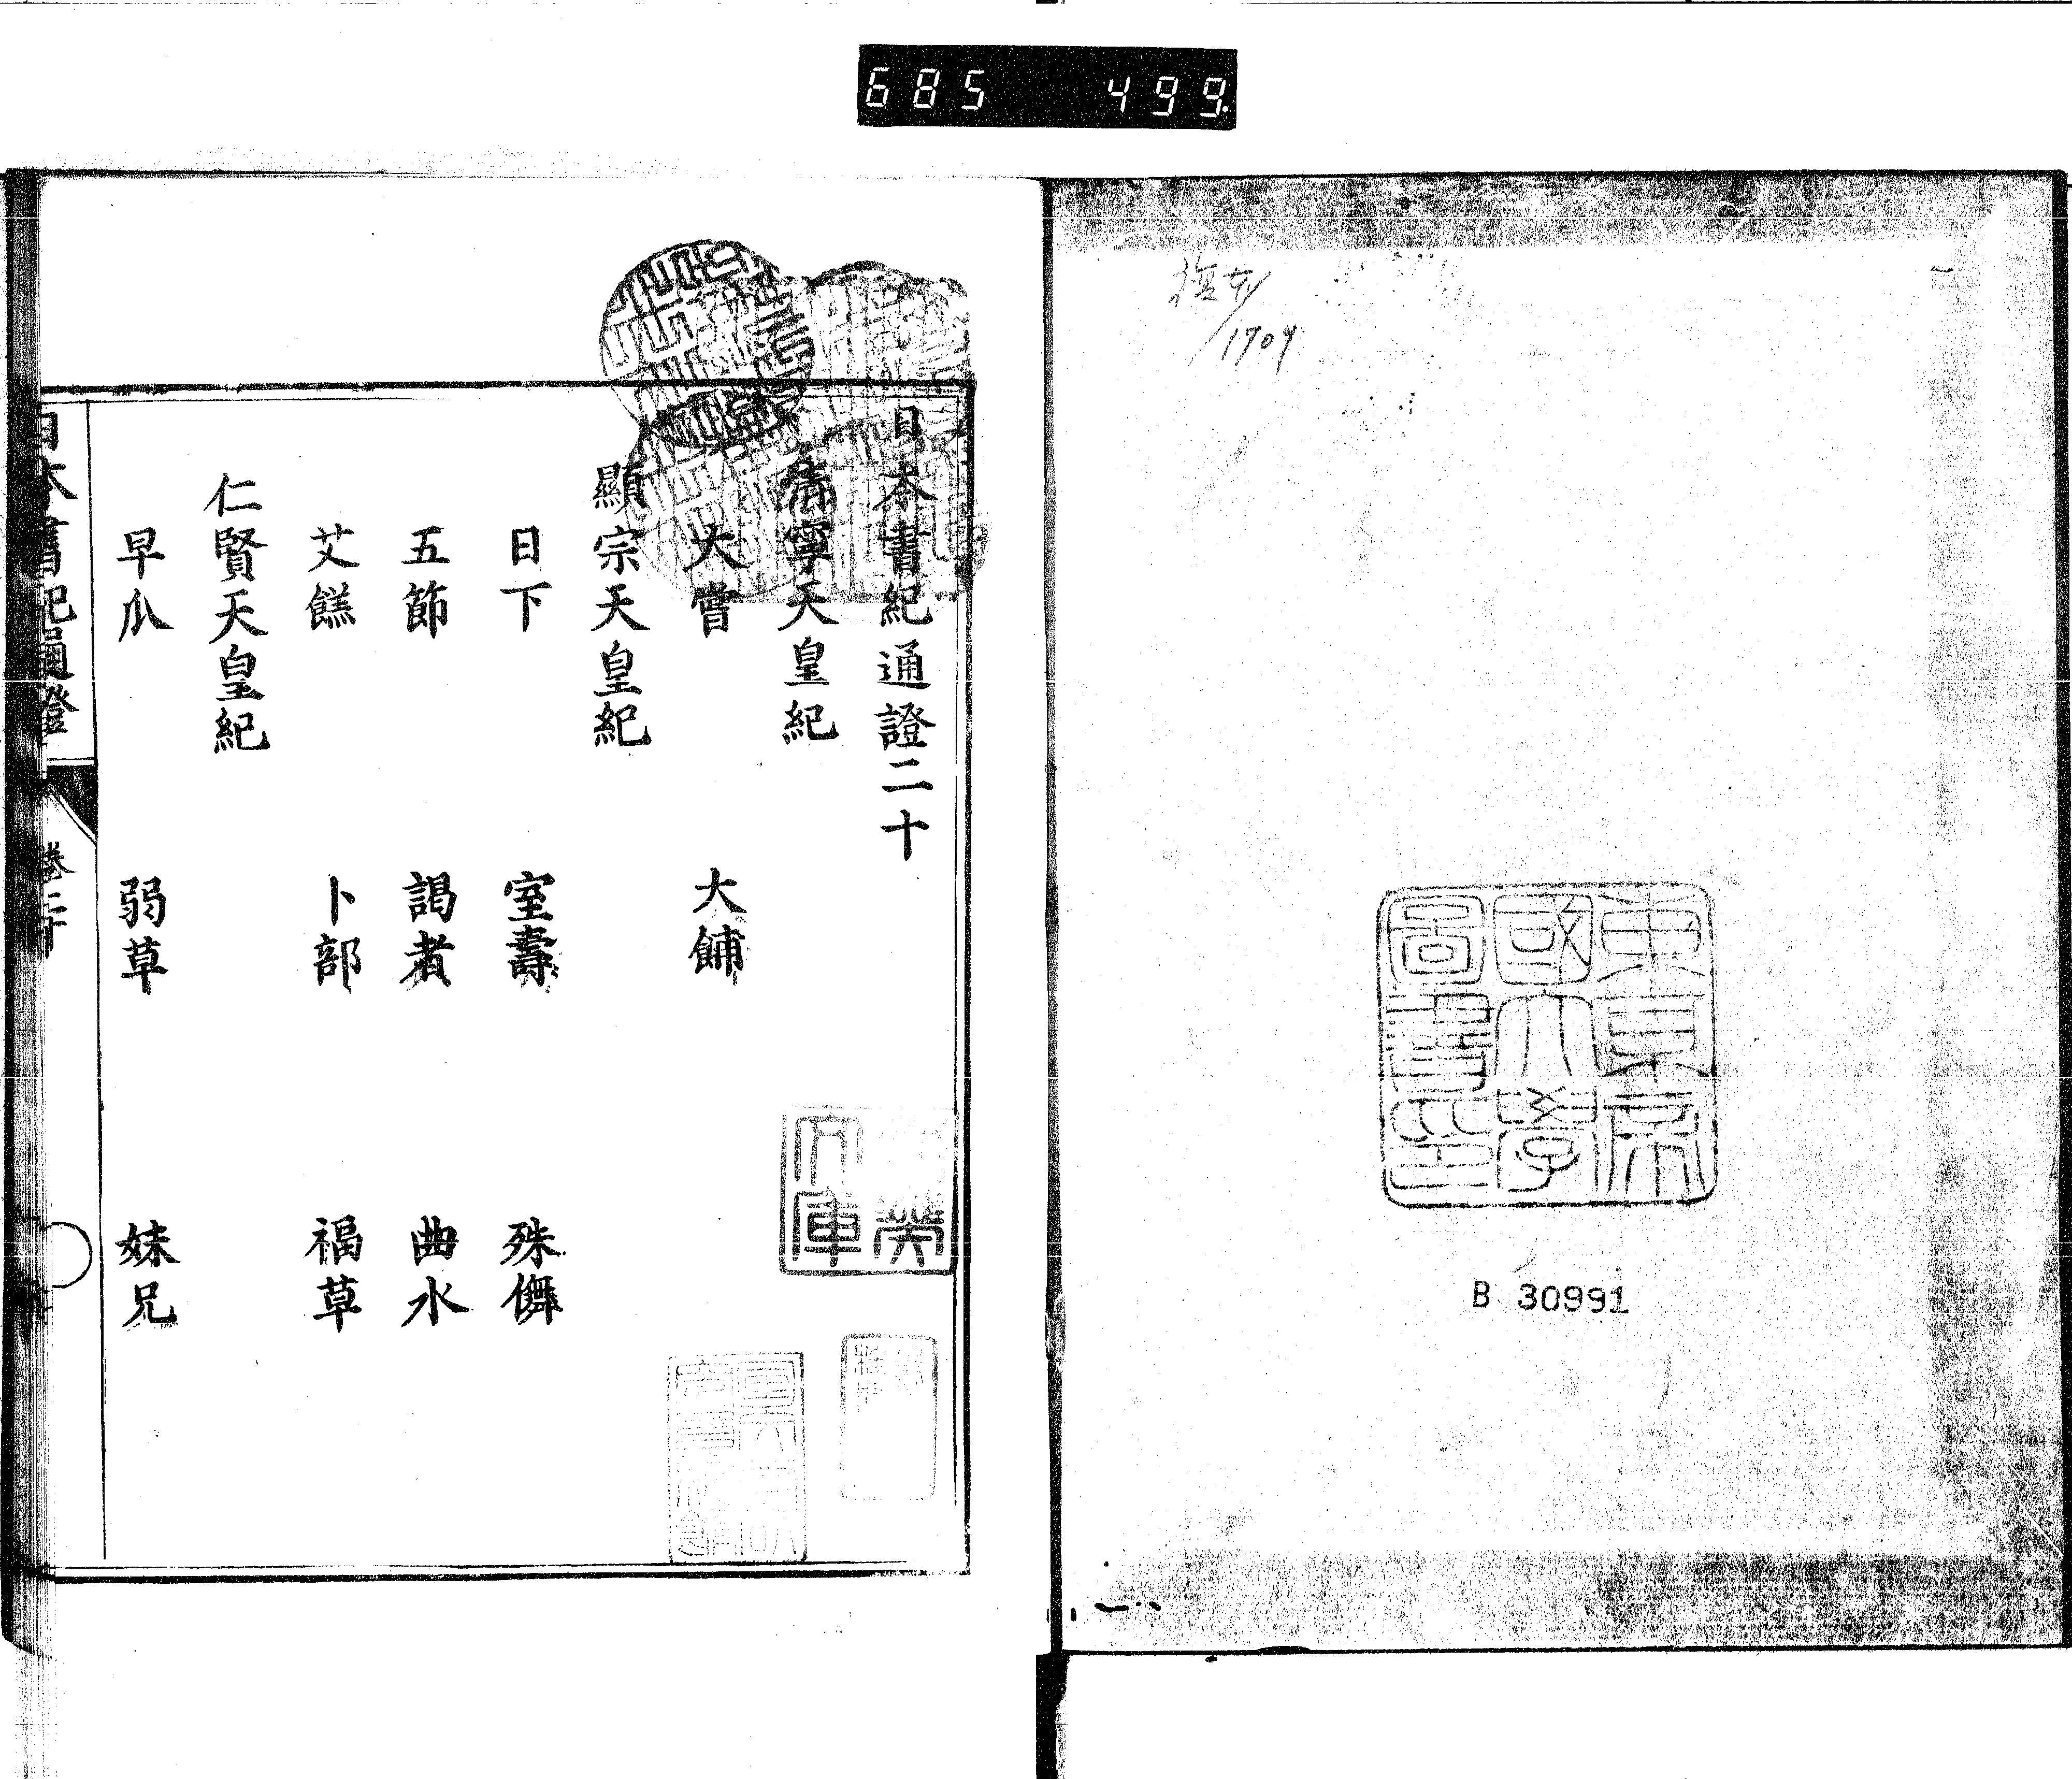 685 499
1709
東京帝
國大學
圖書印
B 30991
日本書紀通證二十
清寧天皇紀
大嘗 大餔
顯宗天皇紀
日下 室壽 殊儛
五節 謁者 曲水
艾餻 卜部 福草
仁賢天皇紀
早瓜 弱草 妹兄
日本書紀通證 卷二十
文庫